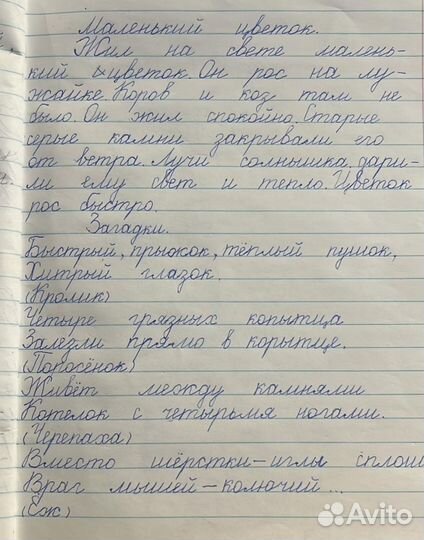 Маленький цветок.
Жил на свете малень-
кий цветок. Он рос на лу-
жайке. Коров и коз там не
было. Он жил спокойно. Старые
серые камни закрывали его
от ветра. Лучи солнышка дари-
ли ему свет и тепло. Цветок
рос быстро.
Загадки.
Быстрый, прыжок, тёплый пушок,
Хитрый глазок.
(Кролик)
Четыре грязных копытца
Залезли прямо в корытце.
(Поросёнок)
Живёт между камнями
Котелок с четырьмя ногами.
(Черепаха)
Вместо шёрстки - иглы сплош
Враг мышей - колючий...
(Ёж)
Avito